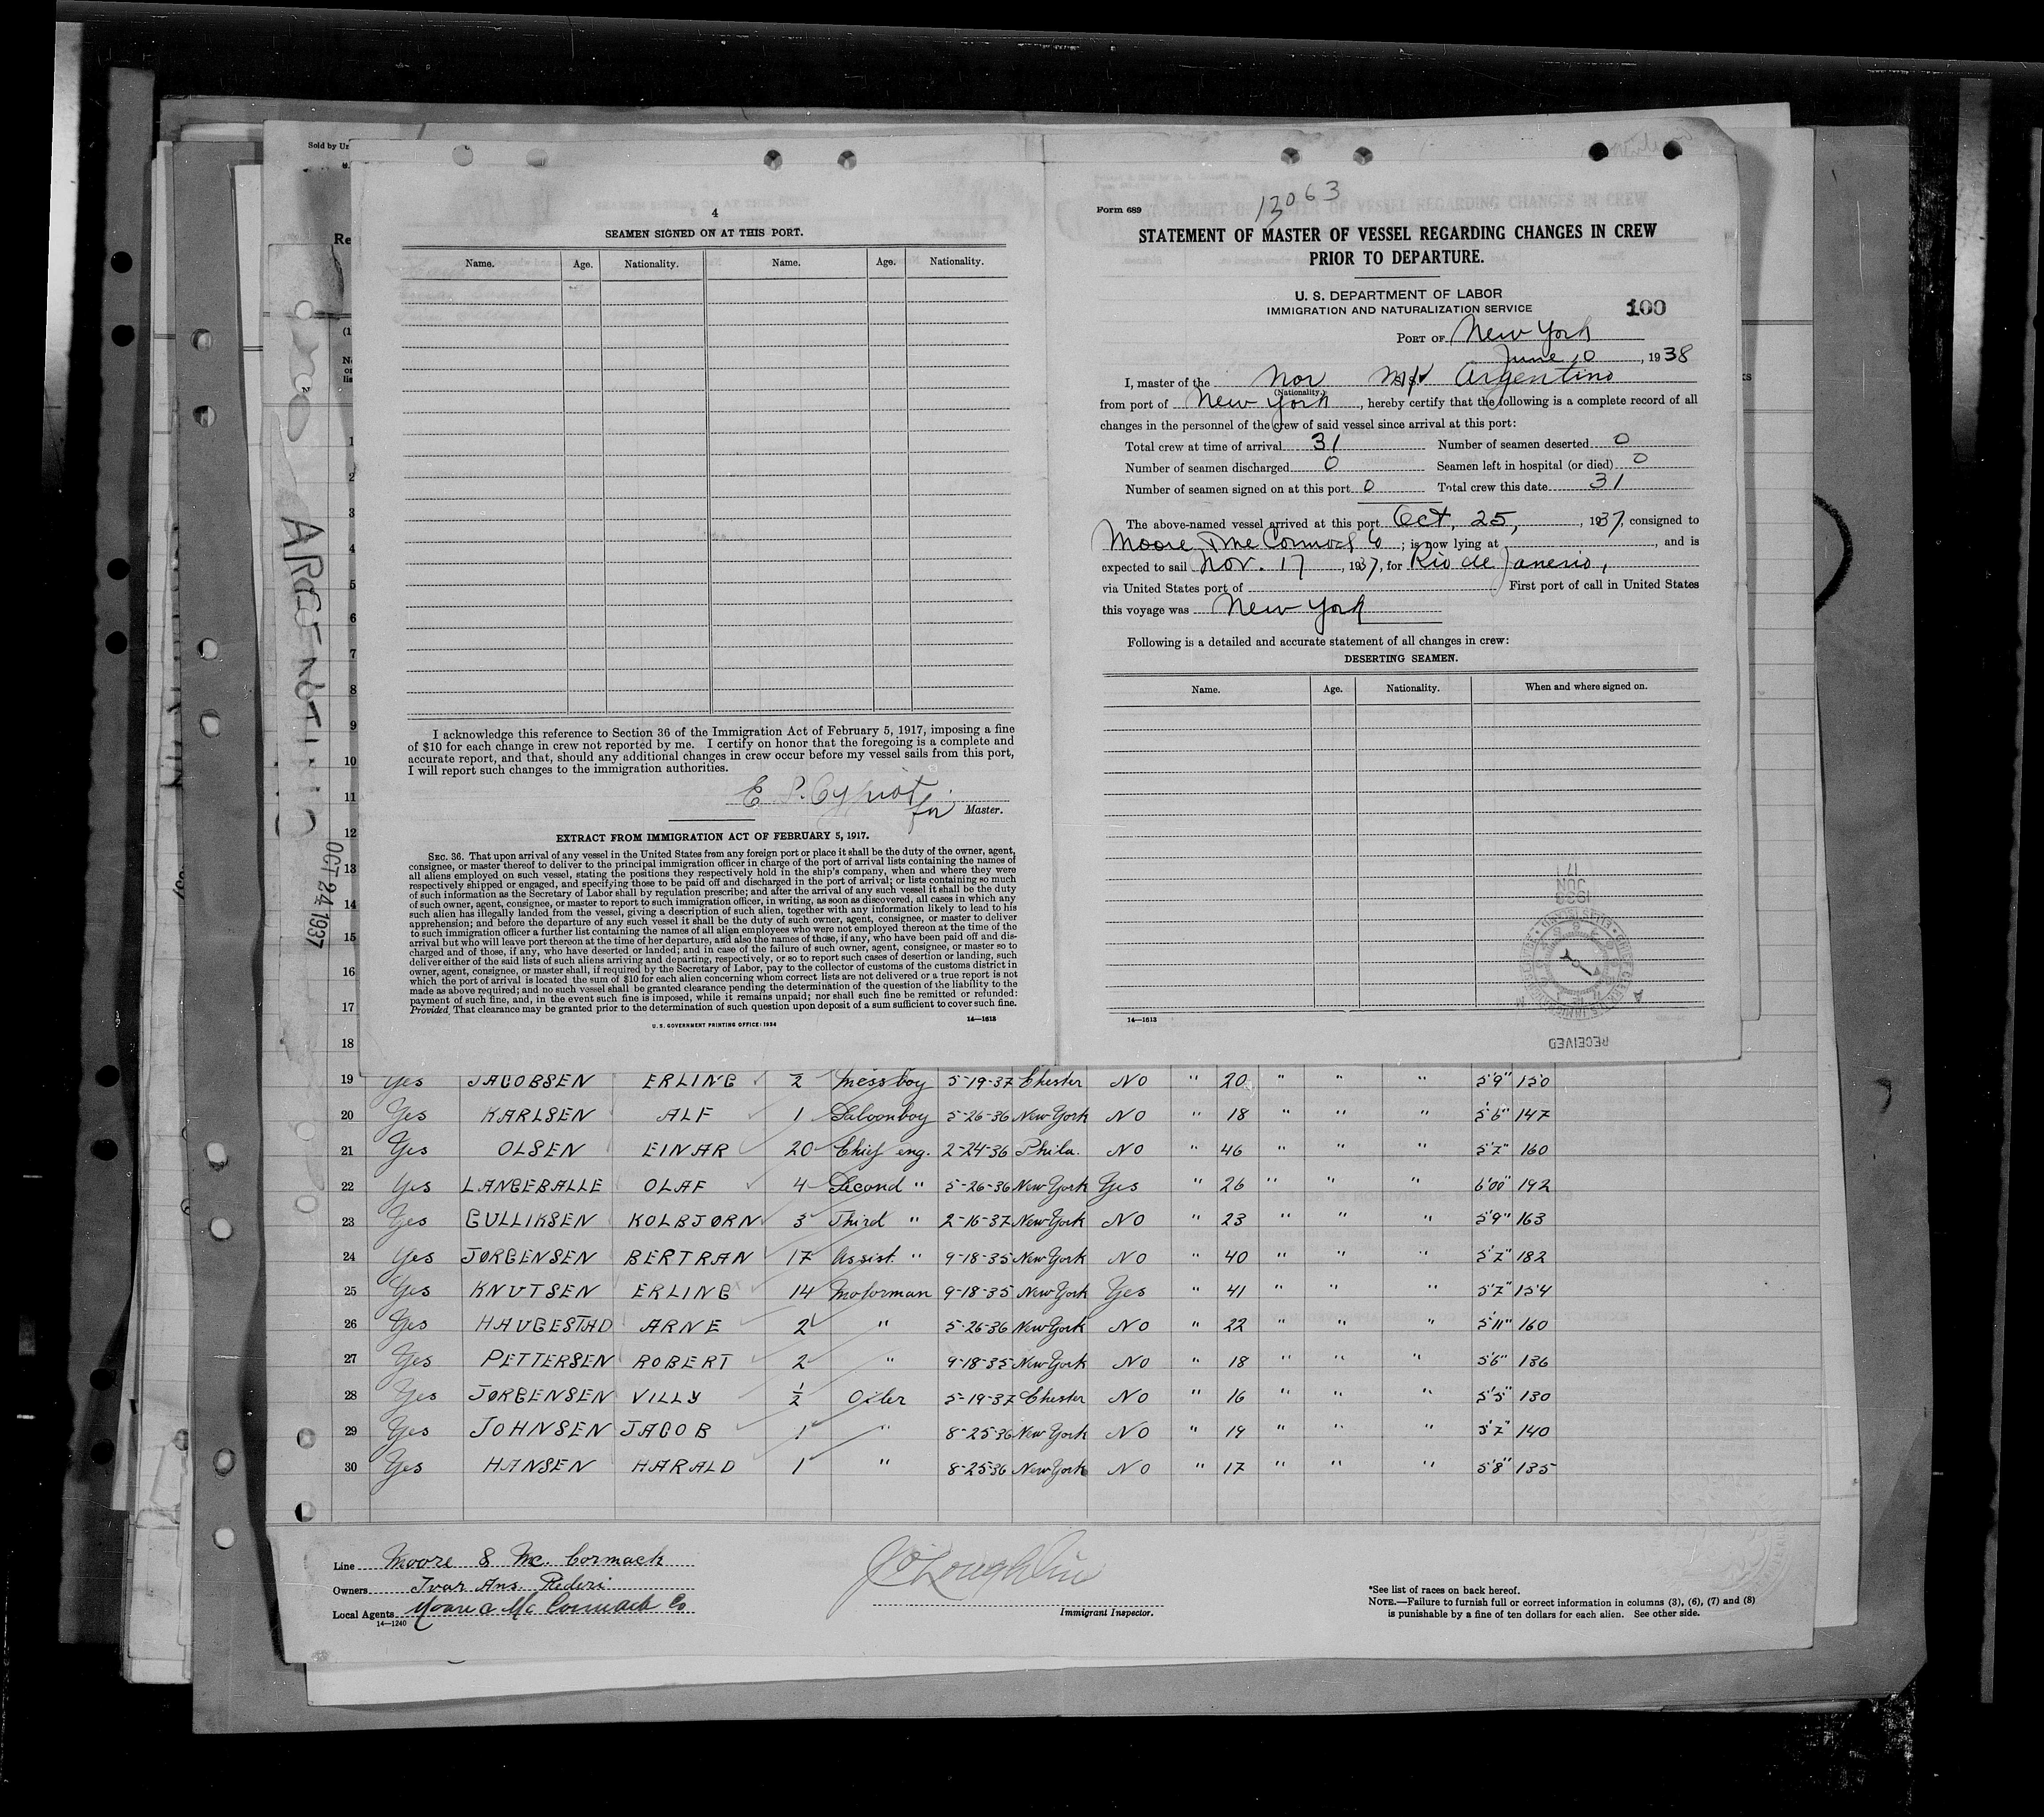 Sold by Un
Re
ARGENTINO
OCT 24 1937
4
SEAMEN SIGNED ON AT THIS PORT.
Name. Age. Nationality. Name. Age. Nationality.
I acknowledge this reference to Section 36 of the Immigration Act of February 5, 1917, imposing a fine
of $10 for each change in crew not reported by me. I certify on honor that the foregoing is a complete and
accurate report, and that, should any additional changes in crew occur before my vessel sails from this port,
I will report such changes to the immigration authorities.
for Master.
EXTRACT FROM IMMIGRATION ACT OF FEBRUARY 5, 1917.
SEC. 36. That upon arrival of any vessel in the United States from any foreign port or place it shall be the duty of the owner, agent,
consignee, or master thereof to deliver to the principal immigration officer in charge of the port of arrival lists containing the names of
all aliens employed on such vessel, stating the positions they respectively hold in the ship's company, when and where they were
respectively shipped or engaged, and specifying those to be paid off and discharged in the port of arrival; or lists containing so much
of such information as the Secretary of Labor shall by regulation prescribe; and after the arrival of any such vessel it shall be the duty
of such owner, agent, consignee, or master to report to such immigration officer, in writing, as soon as discovered, all cases in which any
such alien has illegally landed from the vessel, giving a description of such alien, together with any information likely to lead to his
apprehension; and before the departure of any such vessel it shall be the duty of such owner, agent, consignee, or master to deliver
to such immigration officer a further list containing the names of all alien employees who were not employed thereon at the time of the
arrival but who will leave port thereon at the time of her departure, and also the names of those, if any, who have been paid off and dis-
charged and of those, if any, who have deserted or landed; and in case of the failure of such owner, agent, consignee, or master so to
deliver either of the said lists of such aliens arriving and departing, respectively, or so to report such cases of desertion or landing, such
owner, agent, consignee, or master shall, if required by the Secretary of Labor, pay to the collector of customs of the customs district in
which the port of arrival is located the sum of $10 for each alien concerning whom correct lists are not delivered or a true report is not
made as above required; and no such vessel shall be granted clearance pending the determination of the question of the liability to the
payment of such fine, and, in the event such fine is imposed, while it remains unpaid; nor shall such fine be remitted or refunded:
Provided, That clearance may be granted prior to the determination of such question upon deposit of a sum sufficient to cover such fine.
U. S. GOVERNMENT PRINTING OFFICE: 1934 14—1613
13063
Form 689
STATEMENT OF MASTER OF VESSEL REGARDING CHANGES IN CREW
PRIOR TO DEPARTURE.
U. S. DEPARTMENT OF LABOR
IMMIGRATION AND NATURALIZATION SERVICE 100
PORT OF New York
June 10, 1938
I, master of the Nor M/V Argentino
(Nationality.)
from port of New York, hereby certify that the following is a complete record of all
changes in the personnel of the crew of said vessel since arrival at this port:
Total crew at time of arrival 31 Number of seamen deserted 0
Number of seamen discharged 0 Seamen left in hospital (or died) 0
Number of seamen signed on at this port 0 Total crew this date 31
The above-named vessel arrived at this port Oct, 25, , 1937, consigned to
Moore & McCormack Co ; is now lying at , and is
expected to sail Nov. 17, 1937, for Rio de Janerio,
via United States port of First port of call in United States
this voyage was New York
Following is a detailed and accurate statement of all changes in crew:
DESERTING SEAMEN.
Name. Age. Nationality. When and where signed on.
1938
JUN
17
RECEIVED
14—1613
1
2
3
4
5
6
7
8
9
10
11
12
13
14
15
16
17
18
19 Yes JACOBSEN ERLING 1/2 Messboy 5-19-37 Chester NO " 20 " " " 5'9" 150
20 Yes KARLSEN ALF 1 Saloonboy 5-26-36 New York NO " 18 " " " 5'6" 147
21 Yes OLSEN EINAR 20 Chief eng. 2-24-36 Phila. NO " 46 " " " 5'7" 160
22 Yes LANGEBALLE OLAF 4 Second " 5-26-36 New York Yes " 26 " " " 6'00" 192
23 Yes GULLIKSEN KOLBJØRN 3 Third " 2-16-37 New York NO " 23 " " " 5'9" 163
24 Yes JØRGENSEN BERTRAN 17 Assist. " 9-18-35 New York NO " 40 " " " 5'7" 182
25 Yes KNUTSEN ERLING 14 Motorman 9-18-35 New York Yes " 41 " " " 5'7" 154
26 Yes HAUGESTAD ARNE 2 " 5-26-36 New York NO " 22 " " " 5'11" 160
27 Yes PETTERSEN ROBERT 2 " 9-18-35 New York NO " 18 " " " 5'6" 136
28 Yes JØRGENSEN VILLY 1/2 Oiler 5-19-37 Chester NO " 16 " " " 5'5" 130
29 Yes JOHNSEN JACOB 1 " 8-25-36 New York NO " 19 " " " 5'7" 140
30 Yes HANSEN HARALD 1 " 8-25-36 New York NO " 17 " " " 5'8" 135
Line Moore & Mc. Cormack
Owners Ivar Ans. Rederi
Local Agents Moore & Mc Cormack Co
14—1240
J O'Loughlin
Immigrant Inspector.
*See list of races on back hereof.
NOTE.—Failure to furnish full or correct information in columns (3), (6), (7) and (8)
is punishable by a fine of ten dollars for each alien. See other side.